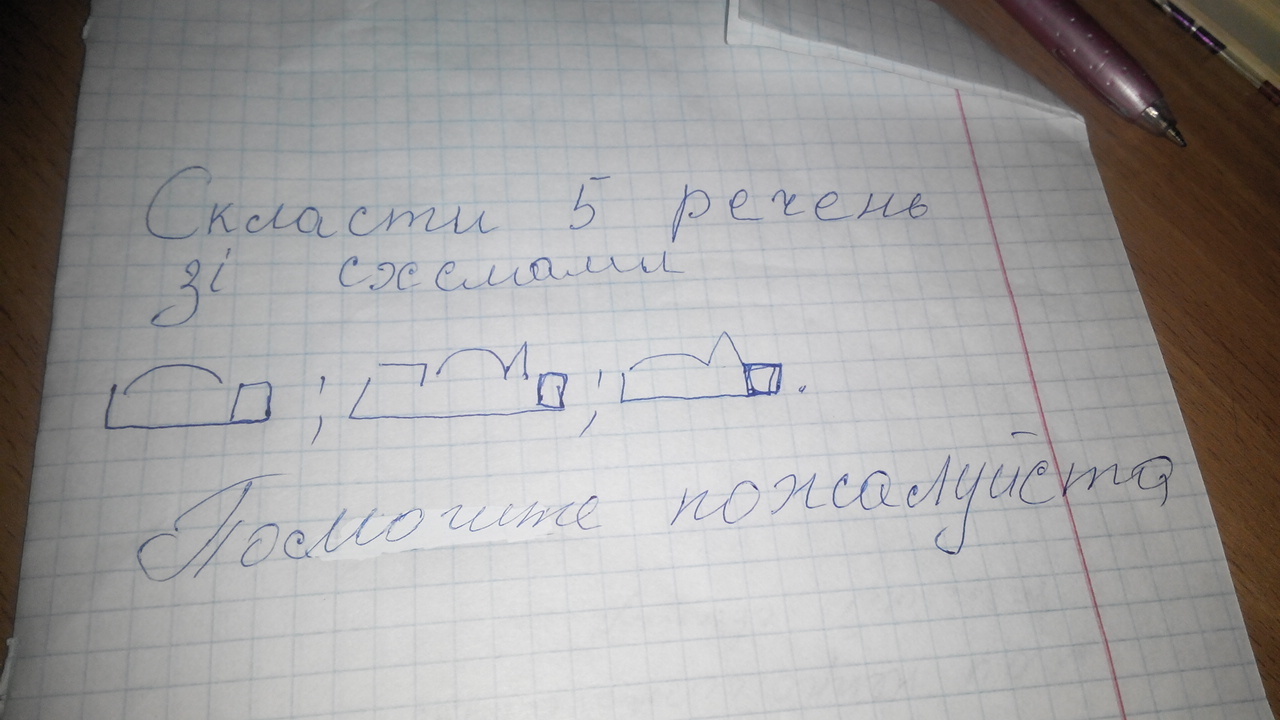 Скласти 5 речень
зі схемами
; ; .
Поможите пожалуйста